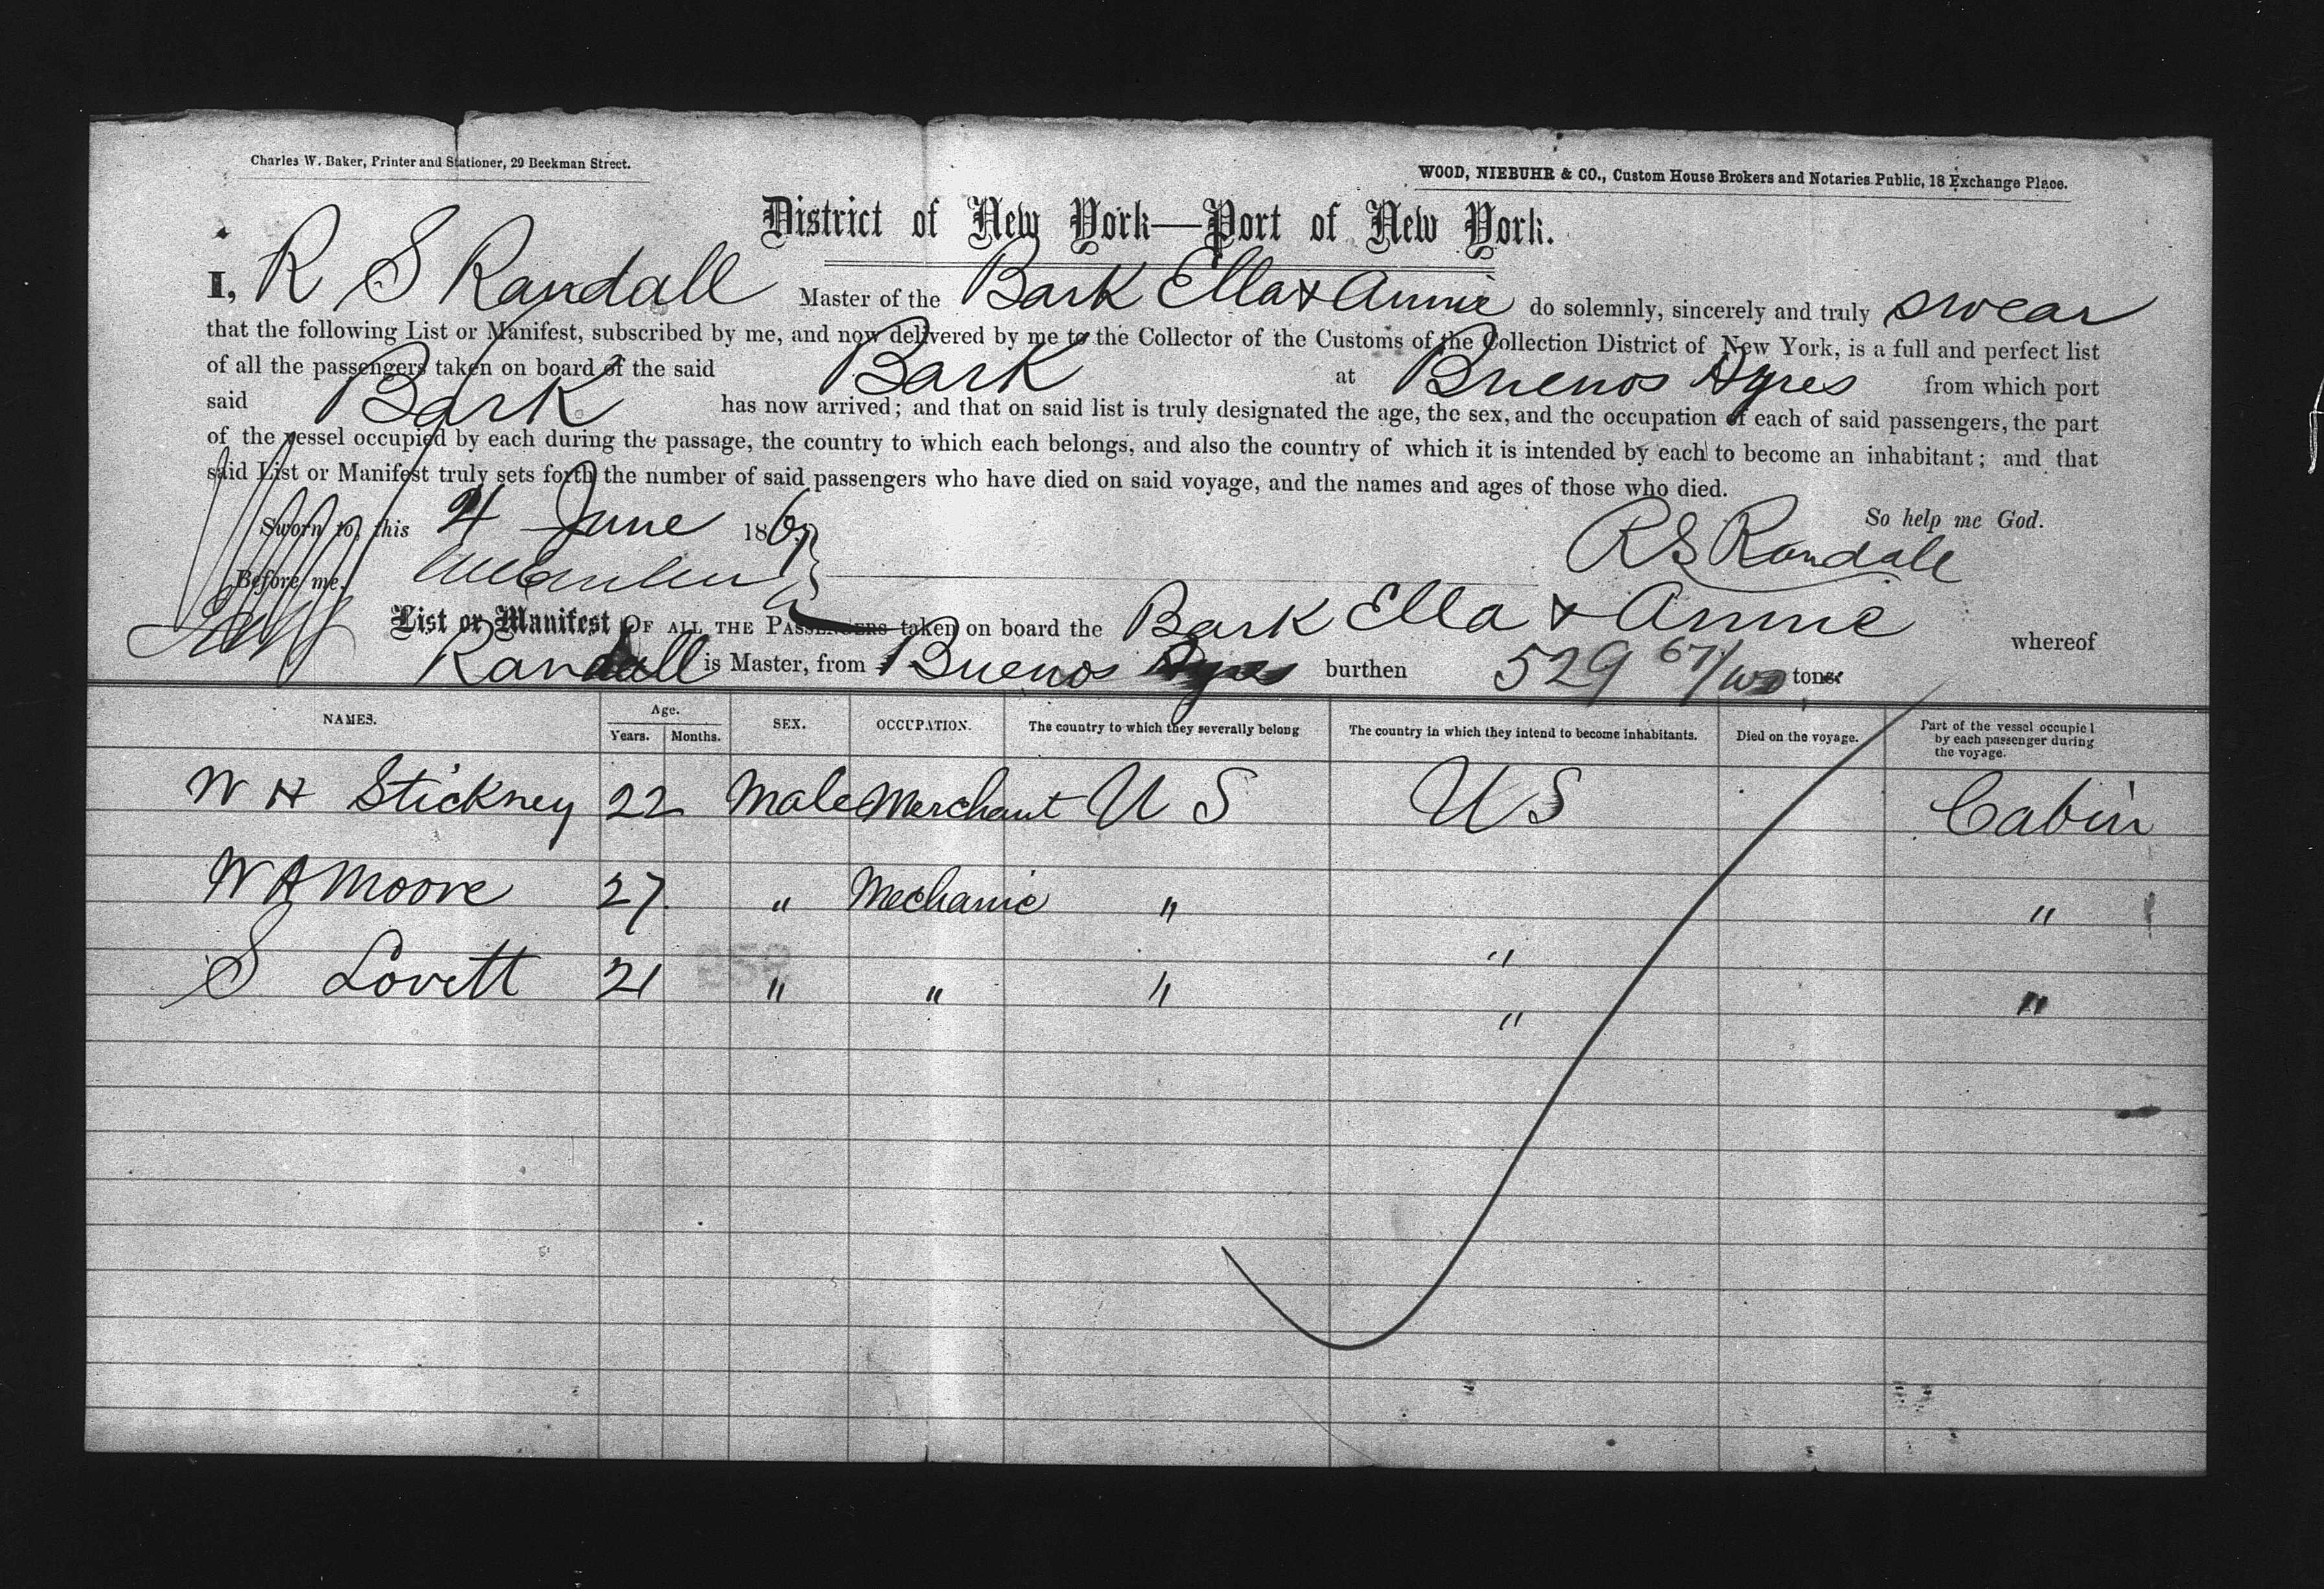 Charles W. Baker, Printer and Stationer, 29 Beekman Street.
WOOD, NIEBUHR & CO., Custom House Brokers and Notaries Public, 18 Exchange Place.
District of New York—Port of New York.
I, R S Randall Master of the Bark Ella & Annie do solemnly, sincerely and truly swear
that the following List or Manifest, subscribed by me, and now delivered by me to the Collector of the Customs of the Collection District of New York, is a full and perfect list
of all the passengers taken on board of the said Bark at Buenos Ayres from which port
said Bark has now arrived; and that on said list is truly designated the age, the sex, and the occupation of each of said passengers, the part
of the vessel occupied by each during the passage, the country to which each belongs, and also the country of which it is intended by each to become an inhabitant; and that
said List or Manifest truly sets forth the number of said passengers who have died on said voyage, and the names and ages of those who died.
So help me God.
Sworn to, this 4 June 1867
RS Randall
Before me,
List or Manifest OF ALL THE PASSENGERS taken on board the Bark Ella & Annie whereof
Randall is Master, from Buenos Ayres burthen 529 67/100 tons.
NAMES. Age. Years. Months. SEX. OCCUPATION. The country to which they severally belong The country in which they intend to become inhabitants. Died on the voyage. Part of the vessel occupied by each passenger during the voyage.
W H Stickney 22 Male Merchant U S U S Cabin
W A Moore 27 " Mechanic " " "
S Lovett 21 " " " " "